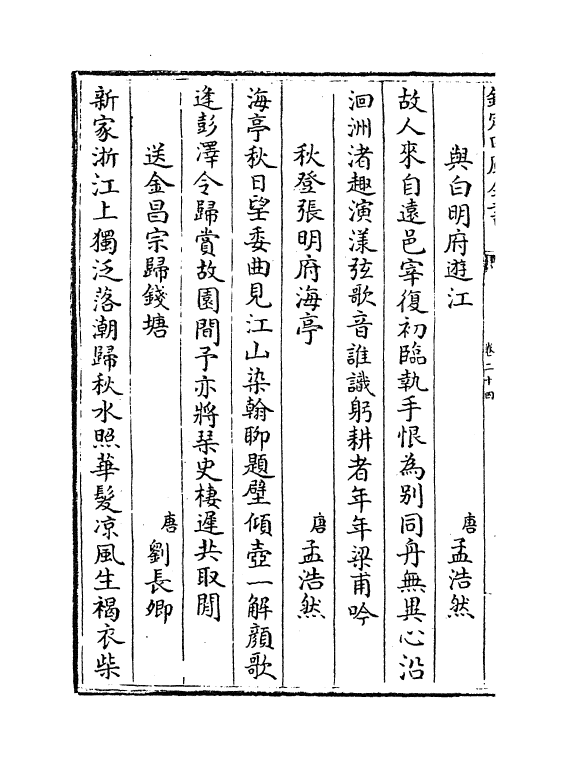 與白明府遊江　唐　孟浩然
故人來自遠邑宰復初臨執手恨為别同舟無異心沿
洄洲渚趣演漾弦歌音誰識躬耕者年年梁甫吟
秋登張明府海亭　唐　孟浩然
海亭秋日望委曲見江山染翰聊題壁傾壺一解顔歌
逢彭澤令歸賞故園間予亦將琴史棲遲共取閒
送金昌宗歸錢塘　唐　劉長卿
新家浙江上獨泛落潮歸秋水照華髮凉風生褐衣柴
卷二十四